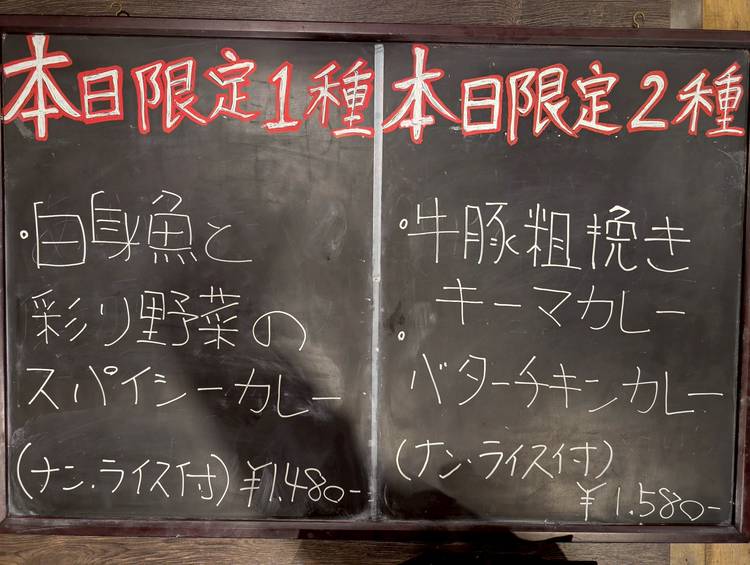 本日限定1種
・白身魚と
彩り野菜の
スパイシーカレー
(ナン.ライス付) ¥1.480-
本日限定2種
・牛豚粗挽き
キーマカレー
・バターチキンカレー
(ナン.ライス付)
¥1.580-